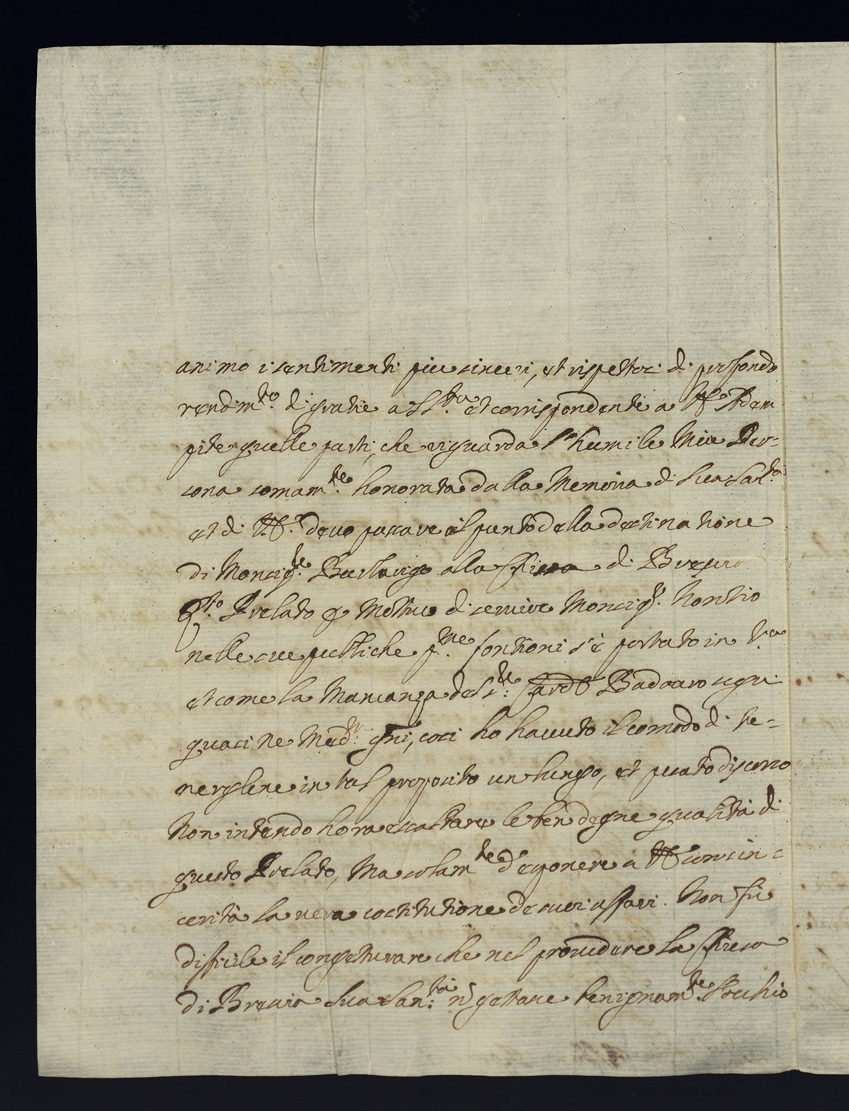 animo i sentimenti più sinceri, et rispettosi di profondo
rendim.to di gratie a S. S.tà et corrispondente a
quelle parti, che riguarda l'humile mia Per-
sona somam.te honorata dalla Memoria di Sua San.tà
et di devo passare al punto della destinatione
di Monsig.re alla Chiesa di Brescia
Q.sto Prelato p Motivo di servire Monsig.r Nontio
nelle sue publiche fontioni s'è portato in
et come la Mancanza del Badoaro seguì
quasi ne Med.mi gni, così ho havuto il comodo di te-
nergliene in tal proposito un lungo, et posato discorso
Non intendo hora esaltare le ben degne qualità di
questo Prelato, Ma solam.te d'esponere a con sin-
cerità la vera costitutione de suoi affari. Non fù
difficile il congetturare che nel provedere la Chiesa
di Brescia Sua San.tà gettare benignam.te l'occhio